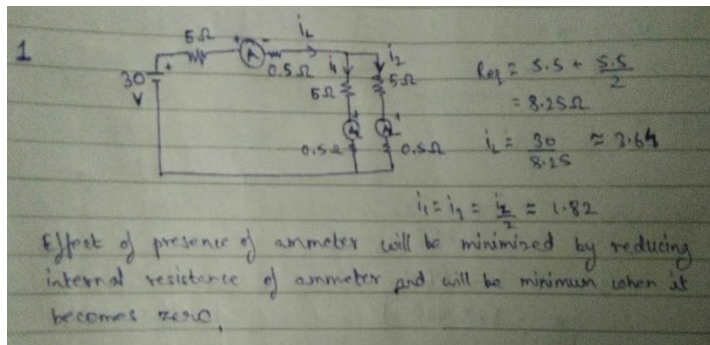 1
5Ω
A
0.5Ω
i_L
i_1
i_2
30
V
5Ω
5Ω
A
A
0.5Ω
0.5Ω
Req = 5.5 + 5.5/2
= 8.25Ω
i_L = 30/8.25 ≈ 3.64
i_1 = i_2 = i_L/2 = 1.82
Effect of presence of ammeter will be minimized by reducing
internal resistance of ammeter and will be minimum when it
becomes zero.